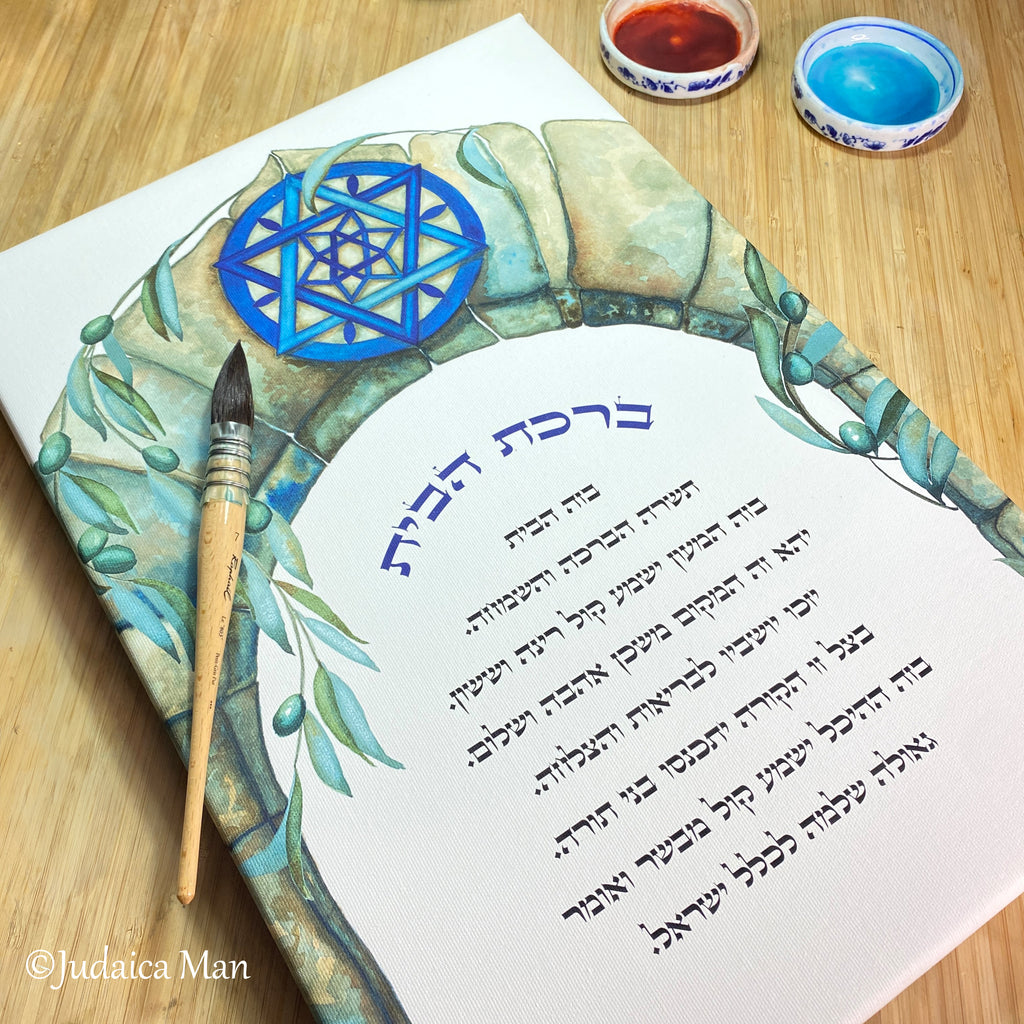 ברכת הבית
בזה הבית
תשרה הברכה והשמחה.
בזה המעון ישמע קול רינה וששון.
יהא זה המקום משכן אהבה ושלום.
יזכו יושביו לבריאות והצלחה.
בצל זו הקורה יתכנסו בני תורה.
בזה ההיכל ישמע קול מבשר ואומר
גאולה שלמה לכלל ישראל.
Raphaël
©Judaica Man